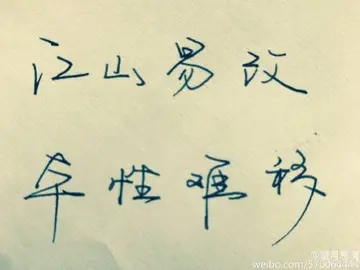 江山易改
本性难移
weibo.com/